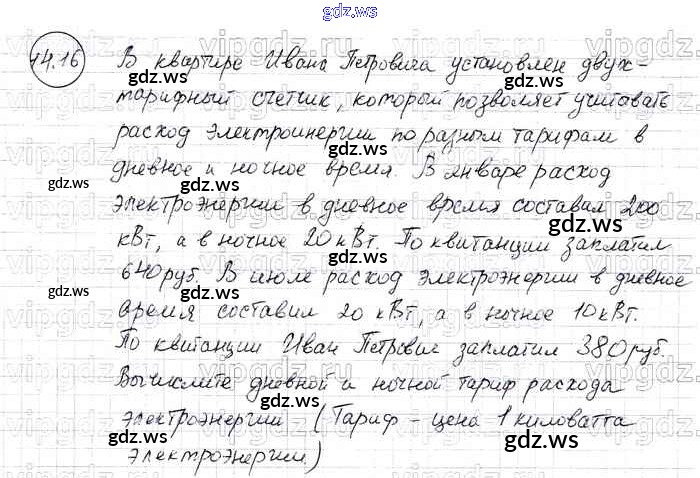 gdz.ws
14.16 В квартире Ивана Петровича установлен двух-
тарифный счетчик, который позволяет учитавать
расход электроинергии по разным тарифам в
дневное и ночное время. В январе расход
электроэнергии в дневное время составил 200
кВт, а в ночное 20 кВт. По квитанции заплатил
640 руб. В июле расход электроэнергии в дневное
время составил 20 кВт, а в ночное 10 кВт.
По квитанции Иван Петрович заплатил 380 руб.
Вычислите дневной и ночной тариф расхода
электроэнергии (Тариф - цена 1 киловатта
электроэнергии.)